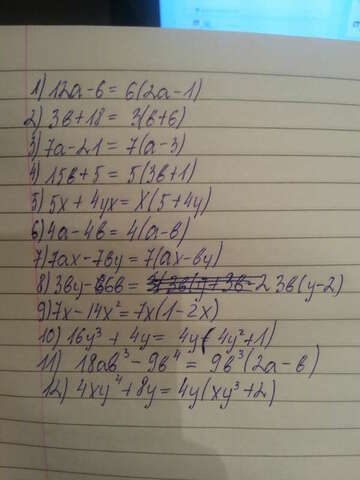 1) 12a-6 = 6(2a-1)
2) 3в+18 = 3(в+6)
3) 7a-21 = 7(a-3)
4) 15в+5 = 5(3в+1)
5) 5x + 4yx = x(5+4y)
6) 4a-4в = 4(a-в)
7) 7ax-7вy = 7(ax-вy)
8) 3вy-6в = 3в(y-2)
9) 7x-14x² = 7x(1-2x)
10) 16y³ + 4y = 4y(4y²+1)
11) 18aв³ - 9в⁴ = 9в³(2a-в)
12) 4xy⁴ + 8y = 4y(xy³+2)